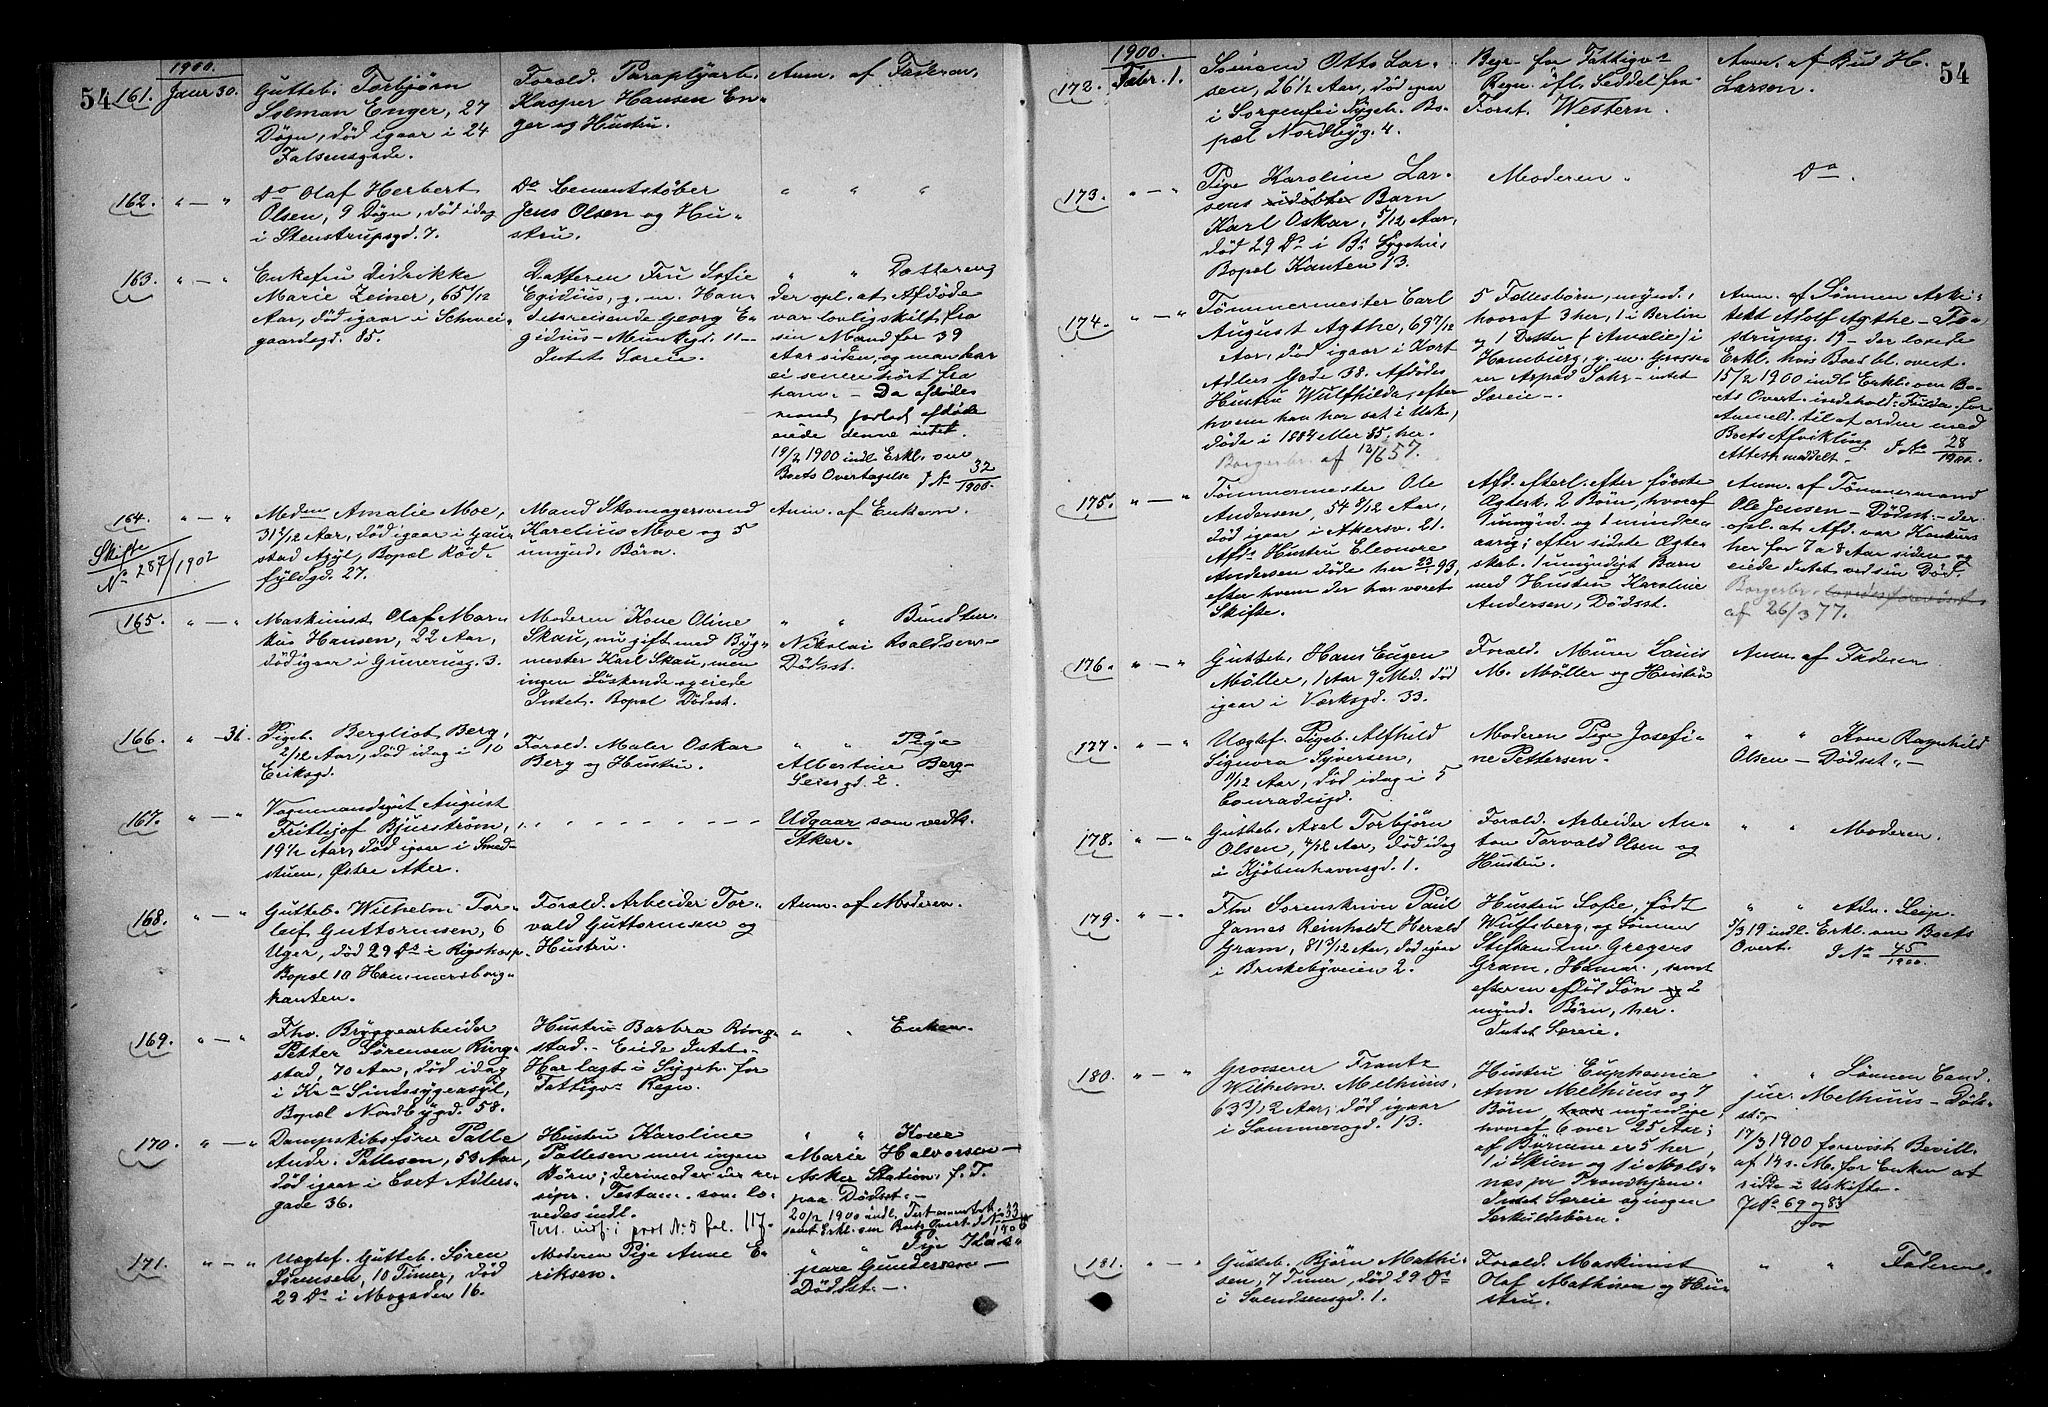 54
1900.
161. Janr 30.
Gutteb. Torbjørn
Salman Enger, 27
Døgn, død igaar i 24
Falsensgade.
Foræld. Paraplyarb.
Kasper Hansen En-
ger og Hustru.
Anm. af Faderen.
162. " — "
Do Olaf Herbert
Olsen, 9 Døgn, død idag
i Stenstrupsgd. 7.
Do Cementstøber
Jens Olsen og Hu-
stru.
" " "
163. " — "
Enkefru Didrikke
Marie Zeiner, 65 4/12
Aar, død igaar i Schwei-
gaardsgd. 85.
Datteren Fru Sofie
Egidius, g. m. Han-
delsreisende Georg E-
gidius - Munkegd. 11 -
Intet Særeie.
" " Datteren,
der opl. at Afdøde
var lovlig skilt fra
sin Mand for 39
Aar siden, og man har
ei senere hørt fra
ham. - Da afdødes
mand forlod afdøde
eiede denne intet.
19/2 1900 indl. Erkl. om
Boets Overtagelse J No 32/1900.
164. " — "
Skifte
No 287/1902
Madm Amalie Moe,
31 7/12 Aar, død igaar i Gau-
stad Asyl, Bopæl Rød-
fyldgd. 27.
Mand Skomagersvend
Karelius Moe og 5
umynd. Børn.
Anm. af Enkem.
165. " — "
Maskinist Olaf Mar-
kus Hansen, 22 Aar,
død igaar i Gunerusg. 3.
Moderen Kone Oline
Skau, nu gift med Byg-
mester Karl Skau, men
ingen Søskende og eiede
Intet. Bopæl Dødsst.
" "
Nikolai Roaldsen -
Dødsst.
166. " - 31.
Pigeb. Bergliot Berg,
2/12 Aar, død idag i 10
Eriksgd.
Foræld. Maler Oskar
Berg og Hustru.
" " Pige
Albertine Berg -
Seiersgd. 2.
167. " — "
Vognmandsgut August
Frithjof Bjurstrøm,
19 1/2 Aar, død igaar i Smed-
stuen, Østre Aker.
Udgaar som vedk.
Aker.
168. " — "
Gutteb. Wilhelm Tor-
leif Guttormsen, 6
Uger, død 29 Ds i Rigshosp.
Bopæl 10 Hammersborg-
kanten.
Foræld. Arbeider Tor-
vald Guttormsen og
Hustru.
Anm. af Moderen.
169. " — "
Fhv. Bryggearbeider
Petter Sørensen Ring-
stad, 70 Aar, død idag
i Kra Sindssygeasyl,
Bopæl Nordbygd. 58.
Hustru Barbra Ring-
stad. - Eiede Intet -
Har lagt i Sygeh. for
Fattigvs Regn.
" " Enken.
170. " — "
Dampskibsfører Palle
Andr. Pallesen, 53 Aar,
død igaar i Cort Adlers-
gade 36.
Hustru Karoline
Pallesen men ingen
Børn; derimod er der re-
cipr. Testam. som lo-
vedes indl.
Test. indf. i prot No 5 fol. 117.
" " Kone
Marie Halvorsen -
Asker Station, f. T.
paa Dødsst. -
20/2 1900 indl. Testamentet
samt Erkl. om Boets Overt. J No 33/1900
171. " — "
Uægtef. Gutteb. Søren
Sørensen, 10 Timer, død
29 Ds i Mogaden 16.
Moderen Pige Anne E-
riksen.
" " Pige Kas-
pare Gundersen -
Dødsst. -
54
1900.
172. Febr. 1.
Sømand Otto Lar-
sen, 26 1/2 Aar, død igaar
i Sorgenfri Sygeh. Bo-
pæl Nordbyg. 4.
Begr. for Fattigvs
Regn. ifl. Seddel fra
Forst. Western.
Anm. af Bud H.
Larsen.
173. " — "
Pige Karoline Lar-
sens udøbte Barn
Karl Oskar, 5/12 Aar,
død 29 Ds i Bs Sygehus,
Bopæl Kanten 13.
Moderen.
Do.
174. " — "
Tømmermester Carl
August Agthe, 69 7/12
Aar, død igaar i Kort
Adlers Gade 38. Afdødes
Hustru Wulfhilda, efter
hvem han har sat i Usk.,
døde i 1884 eller 85, her.
Borgerbr. af 12/6 57.
5 Fællesbørn, mynd.,
hvoraf 3 her, 1 i Berlin
og 1 Datter (Amalie) i
Hamburg, g. m. Grosse-
rer Arpad Sahr - intet
Særeie -.
Anm. af Sønnen Arki-
tekt Adolf Agthe - To-
strupsg. 19 - der lovede
Erkl. hvis Boet bl. overt.
15/2 1900 indl. Erkl. om Bo-
ets Overt. indehold. Fuldm. for
Anmeld. til at ordne med
Boets Afvikling J No 28/1900.
Attest meddelt.
175. " — "
Tømmermester Ole
Andersen, 54 8/12 Aar,
død igaar i Akersv. 21.
Afds Hustru Eleonore
Andersen døde her 93,
efter hvem der har været
Skifte.
Afd. efterl. efter første
Ægtesk. 2 Børn, hvoraf
1 umynd. og 1 mindreaa-
arig; efter sidste Ægte-
skab. 1 umyndigt Barn
med Hustru Karoline
Andersen, Dødsst.
Anm. af Tømmermand
Ole Jensen - Dødsst. - der
opl. at Afd. var Konkurs
her for 7 a 8 Aar siden og
eiede Intet ved sin Død.
Borgerbr.
af 26/3 77.
176. " — "
Gutteb. Hans Eugen
Møller, 1 Aar 9 Md. død
igaar i Værksgd. 33.
Foræld. Murer Lauis
M. Møller og Hustru
Anm. af Faderen
177. " — "
Uægtef. Pigeb. Alfhild
Signora Syversen,
11/12 Aar, død idag i 5
Conradisgd.
Moderen Pige Josefi-
ne Pettersen.
" " Kone Ragnhild
Olsen - Dødsst. -
178. " — "
Guttebr. Axel Torbjørn
Olsen, 4/12 Aar, død idag
i Kjøbenhavnsgd. 1.
Foræld. Arbeider An-
ton Torvald Olsen og
Hustru.
" " Moderen.
179. " — "
Fhv Sorenskriver Paul
James Reinholdt Herald
Gram, 81 3/12 Aar, død igaar
i Briskebyveien 2.
Hustru Sofie, født
Wulfsberg, og Sønnen
Stiftamtm. Gregers
Gram, Hamar, samt
efter en afdød Søn og 2
mynd. Børn, her.
Intet Særeie.
" " Adv. Seip.
5/3 19 indl. Erkl. om Boets
Overt. J No 45/1900.
180. " — "
Grosserer Frantz
Wilhelm Melhuus,
63 3/12 Aar, død igaar
i Sommerogd. 13.
Hustru Euphemia
Ann Melhuus og 7
Børn, myndige,
hvoraf 6 over 25 Aar;
af Børnene er 5 her,
1 i Skien og 1 i Mels-
næs pr Trondhjem.
Intet Særeie og ingen
Særkuldsbørn.
" " Sønnen Cand.
jur. Melhuus - Døds-
st. -
17/3 1900 forevist Bevill.
af 14 s. M. for Enken at
sidde i Uskifte.
J No 69 og 83/900
181. " — "
Guttebr. Bjørn Mathi-
sen, 7 Timer, død 29 Ds
i Svendsensgd. 1.
Foræld. Maskinist
Olaf Mathisen og Hu-
stru.
" " Faderen.